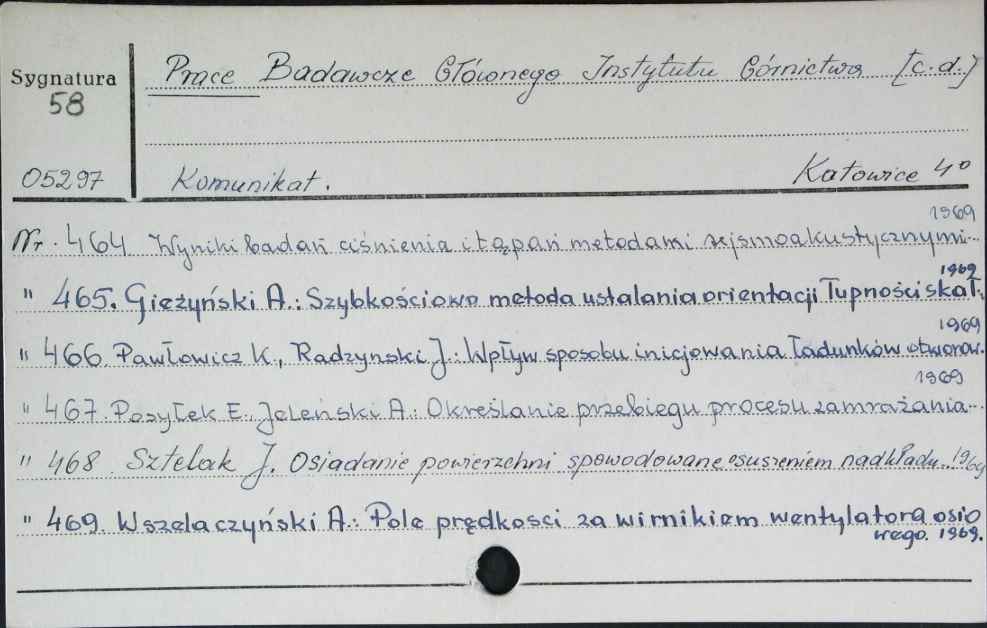 Sygnatura
58
Prace Badawcze Głównego Instytutu Górnictwa [c.d.]
05297
Komunikat.
Katowice 4°
1969
Nr. 464. Wyniki badań ciśnienia i tąpań metodami sejsmoakustycznymi...
1969
" 465. Gieżyński A.: Szybkościowa metoda ustalania orientacji łupności skał.
1969
" 466. Pawłowicz K., Radzynski J.: Wpływ sposobu inicjowania ładunków otworow.
1969
" 467. Posyłek E. Jeleński A.: Określanie przebiegu procesu zamrażania...
" 468 Sztelak J. Osiadanie powierzchni spowodowane osuszeniem nadkładu... 1969
" 469. Wszelaczyński A.: Pole prędkosci za wirnikiem wentylatora osio
wego. 1969.